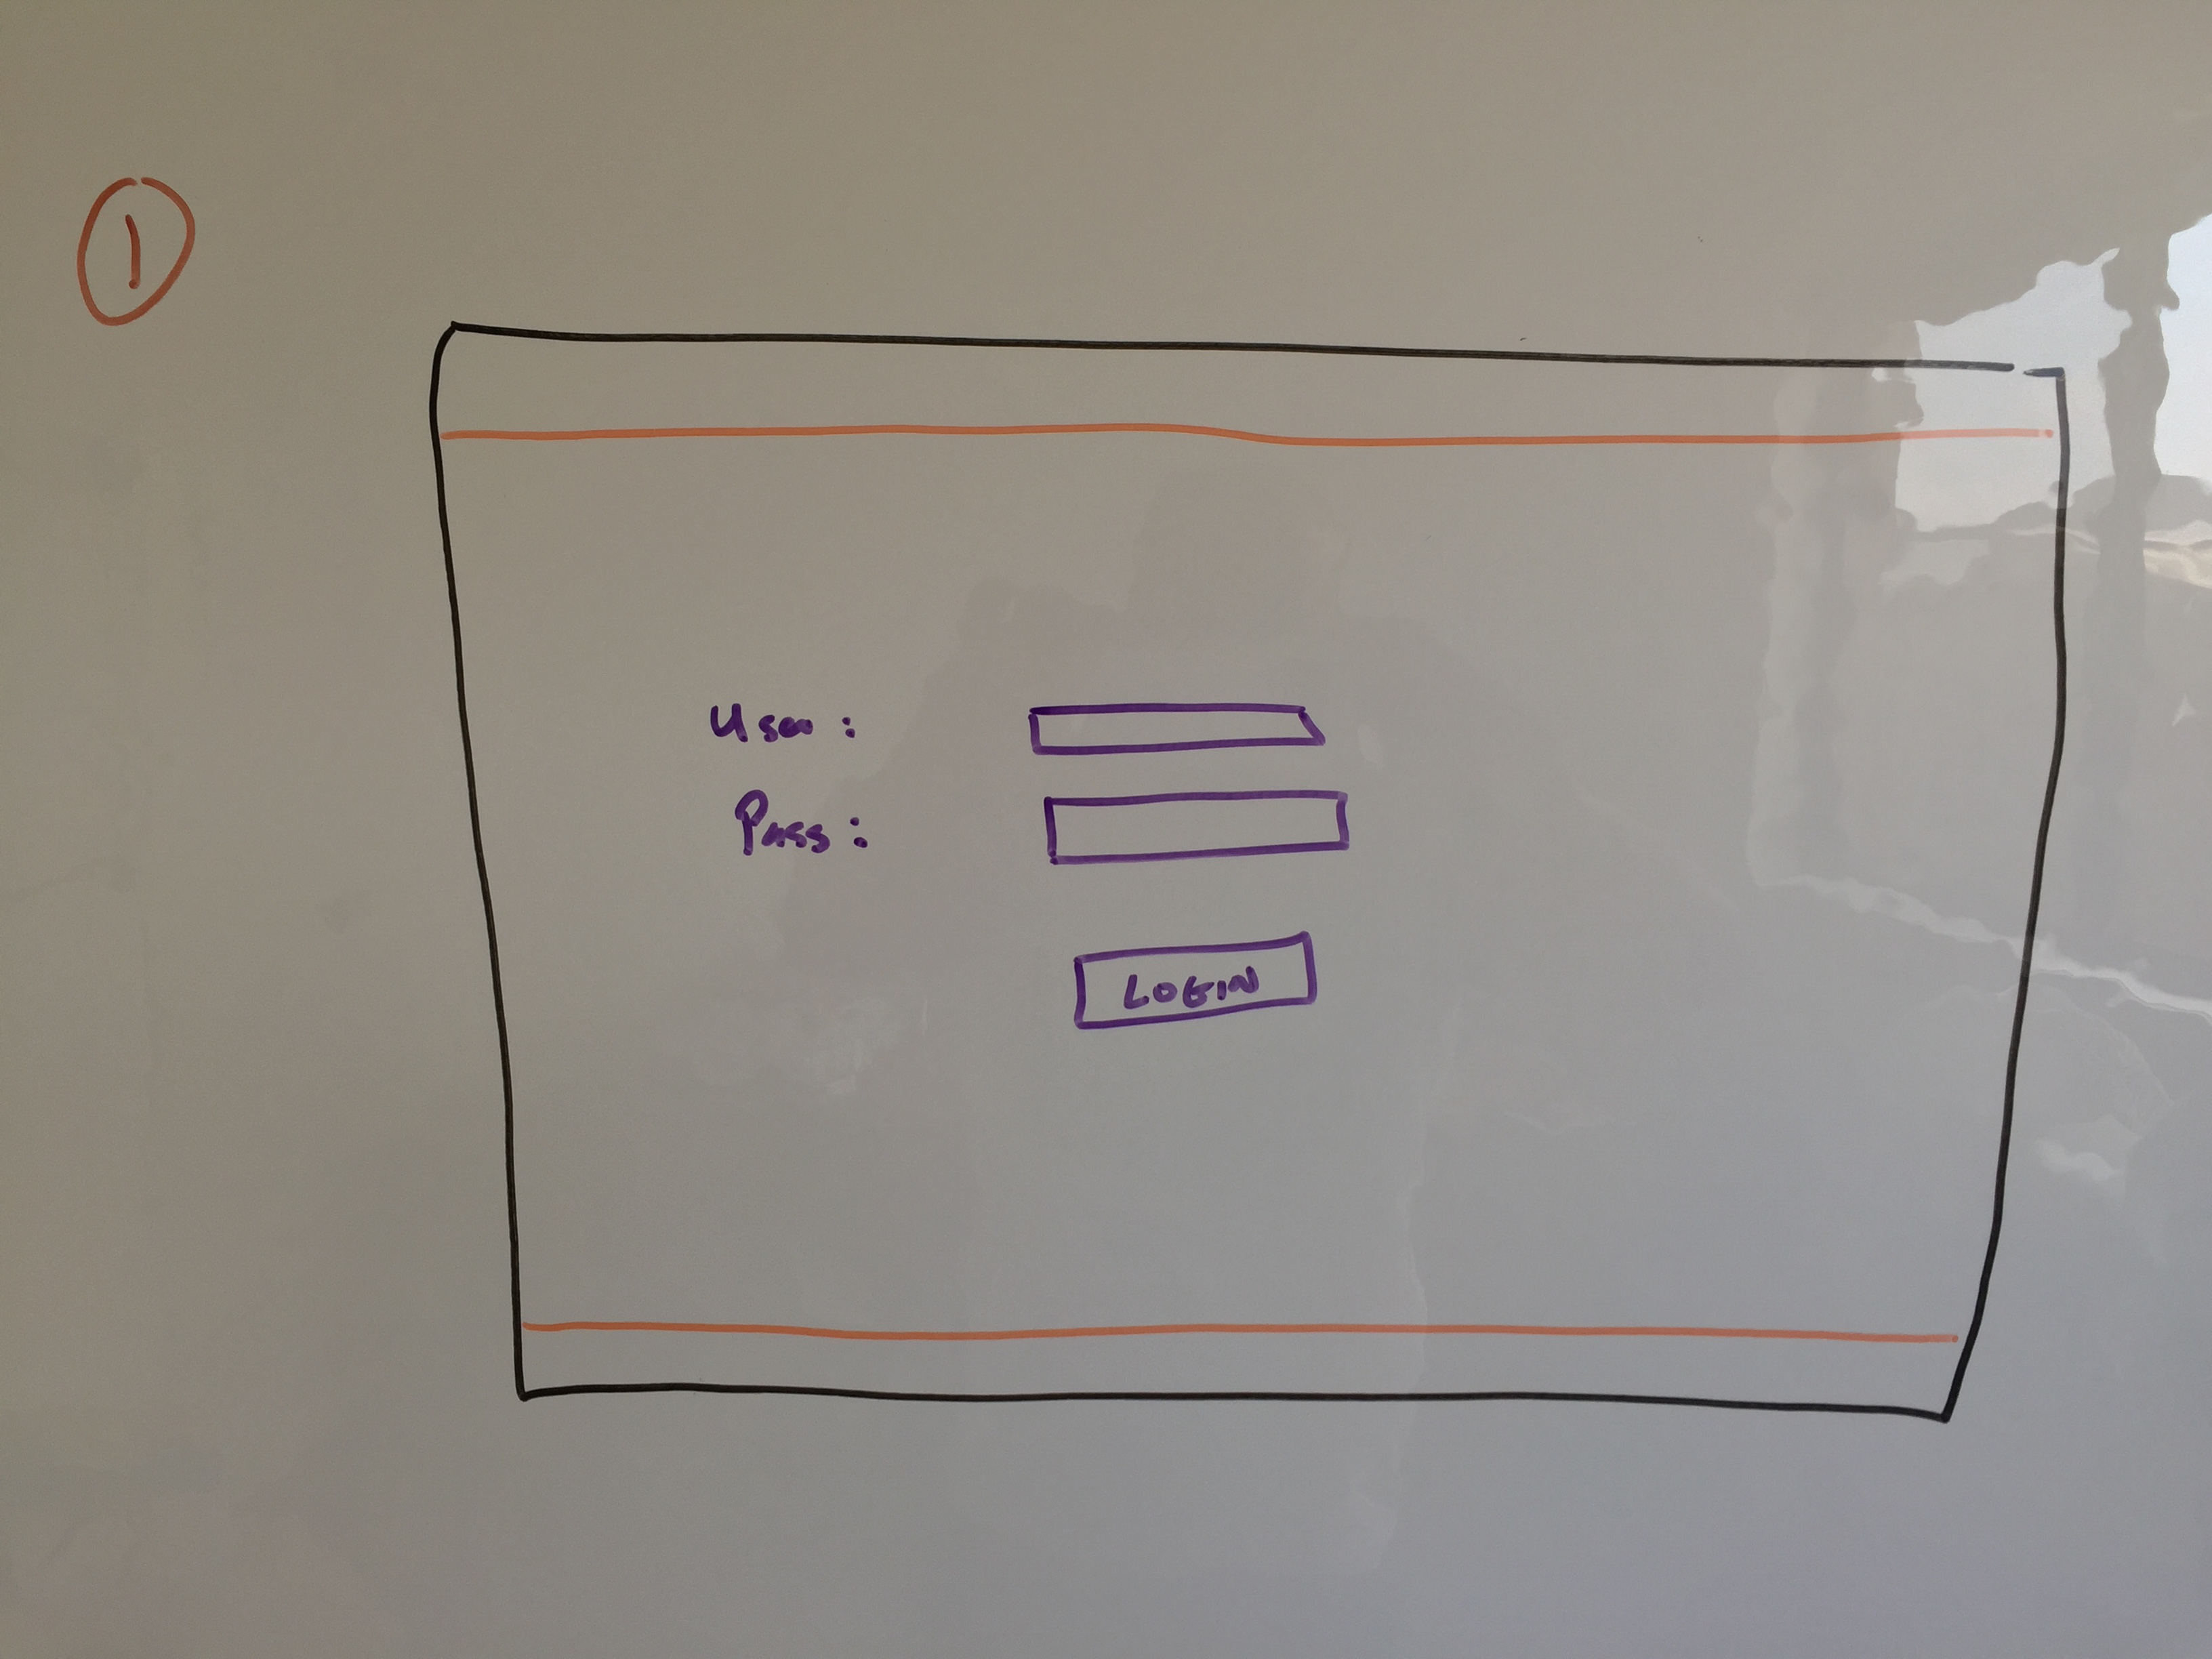 1
User :
Pass :
LOGIN